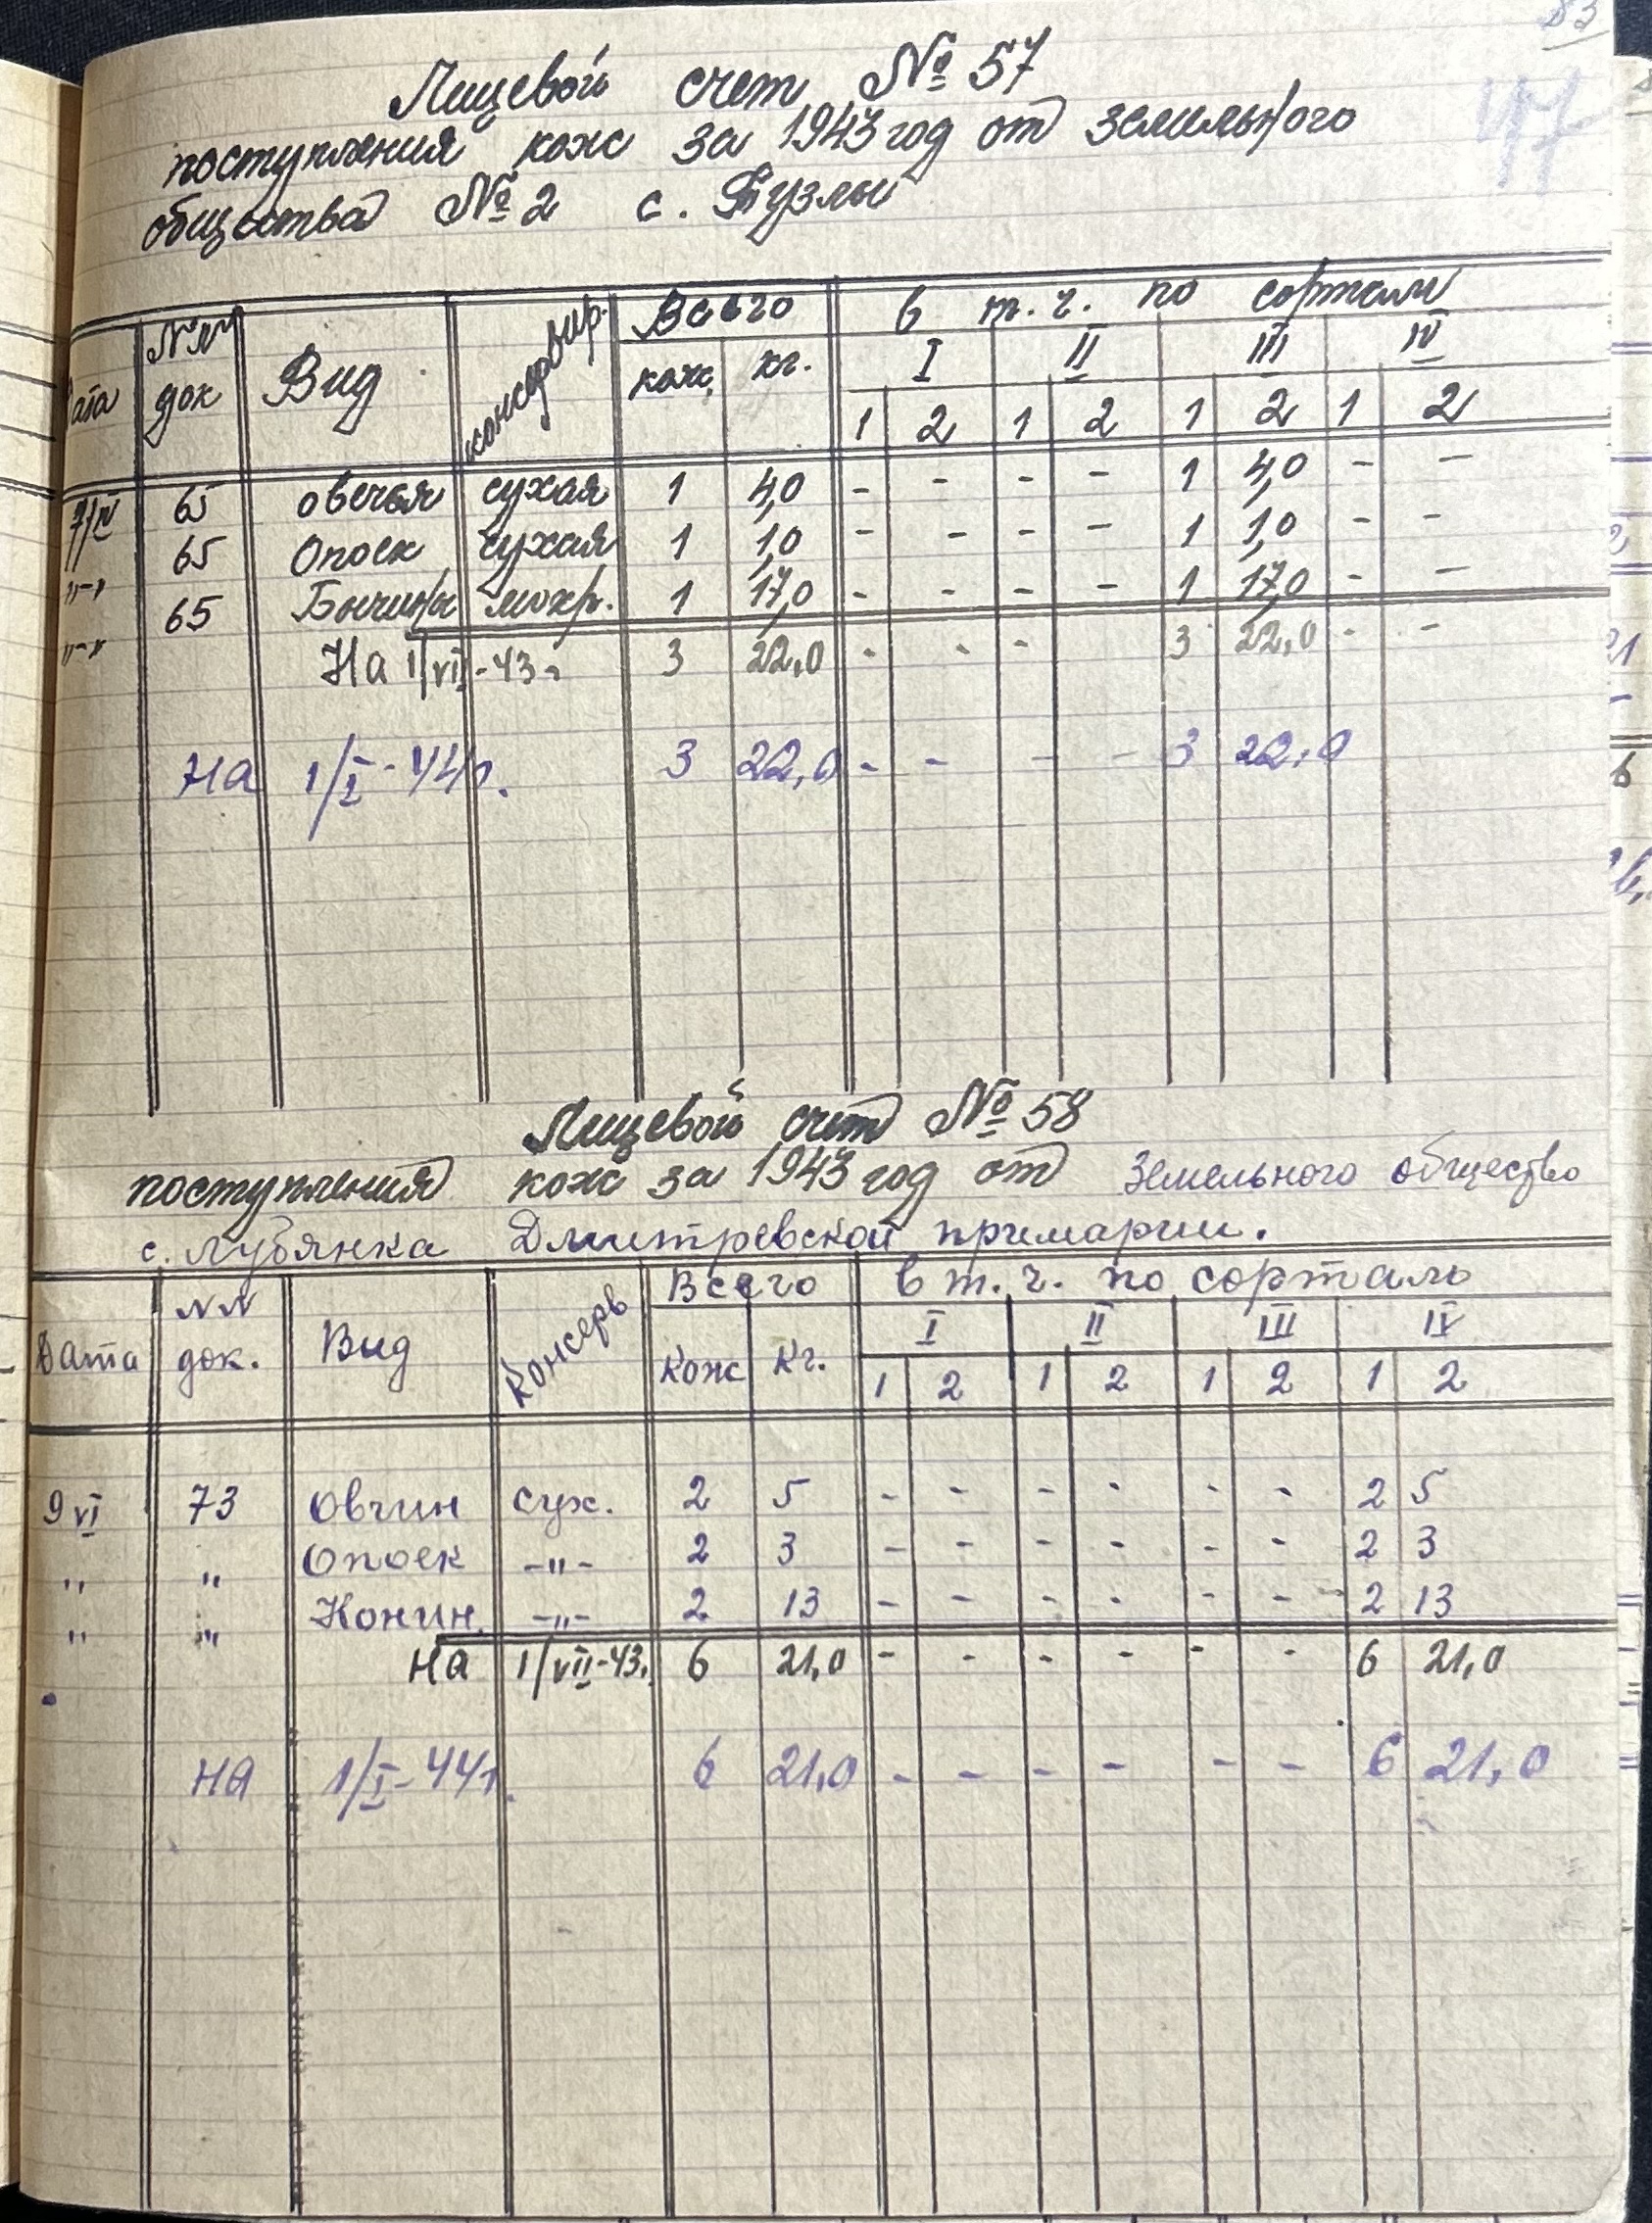 83
47
Лицевой счет № 57
поступления кож за 1943 год от земельного
общества № 2 с. Тузлы
Дата №№ док Вид консервир. Всего в т. ч. по сортам
кож кг. I II III IV
1 2 1 2 1 2 1 2
7/IV 65 овечья сухая 1 4,0 - - - - 1 4,0 - -
"-" 65 Опоек сухая 1 1,0 - - - - 1 1,0 - -
"-" 65 Бычины мокр. 1 17,0 - - - - 1 17,0 - -
На 1/VI-43г. 3 22,0 - - - 3 22,0 - -
На 1/I-44г. 3 22,0 - - - - 3 22,0
Лицевой счет № 58
поступления кож за 1943 год от земельного общество
с. Лубянка Дмитревской примарии.
Дата №№ док. Вид Консерв Всего в т. ч. по сортам
Кож Кг. I II III IV
1 2 1 2 1 2 1 2
9 VI 73 Овчин сух. 2 5 - - - - - - 2 5
" " Опоек -"- 2 3 - - - - - - 2 3
" " Конин. -"- 2 13 - - - - - - 2 13
На 1/VII-43. 6 21,0 - - - - - - 6 21,0
на 1/I-44г. 6 21,0 - - - - - - 6 21,0